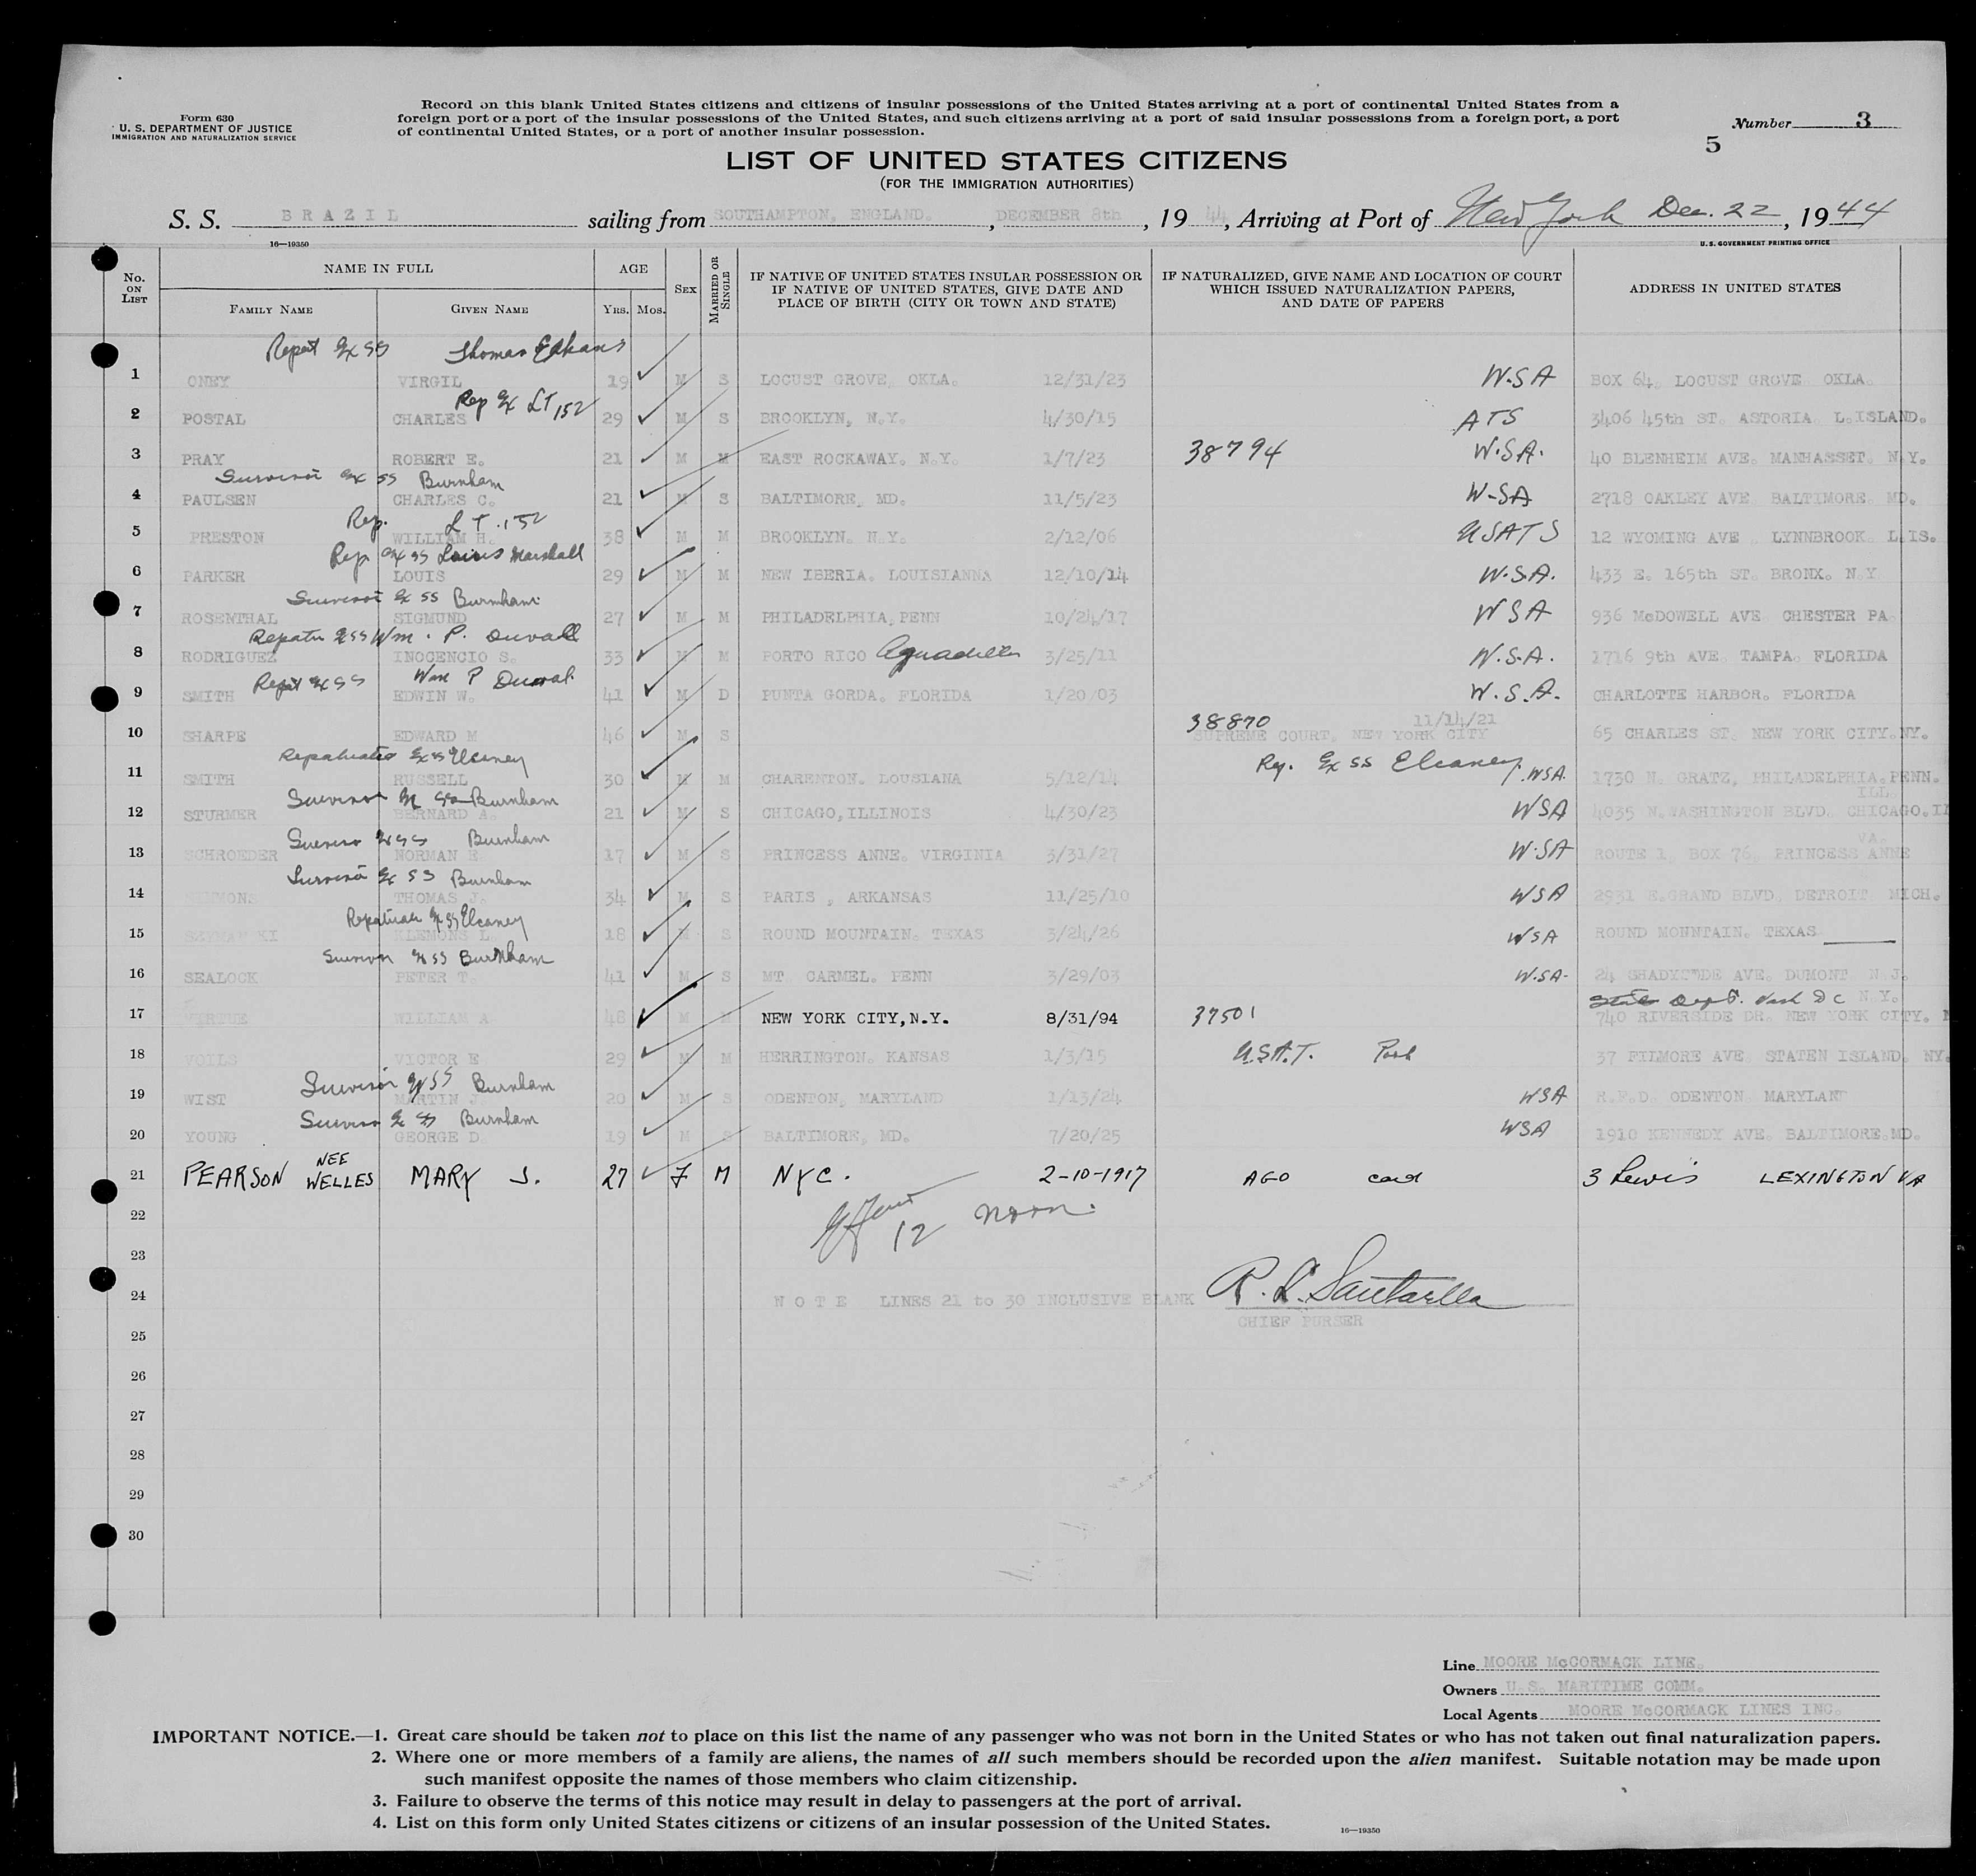 Form 630
U. S. DEPARTMENT OF JUSTICE
IMMIGRATION AND NATURALIZATION SERVICE
Record on this blank United States citizens and citizens of insular possessions of the United States arriving at a port of continental United States from a
foreign port or a port of the insular possessions of the United States, and such citizens arriving at a port of said insular possessions from a foreign port, a port
of continental United States, or a port of another insular possession.
Number 3
5
LIST OF UNITED STATES CITIZENS
(FOR THE IMMIGRATION AUTHORITIES)
S. S. BRAZIL sailing from SOUTHAMPTON, ENGLAND. , DECEMBER 8th , 19 44, Arriving at Port of New York Dec. 22, 1944
16—19350 U. S. GOVERNMENT PRINTING OFFICE
No. ON LIST NAME IN FULL FAMILY NAME GIVEN NAME AGE YRS. MOS. SEX MARRIED OR SINGLE IF NATIVE OF UNITED STATES INSULAR POSSESSION OR IF NATIVE OF UNITED STATES, GIVE DATE AND PLACE OF BIRTH (CITY OR TOWN AND STATE) IF NATURALIZED, GIVE NAME AND LOCATION OF COURT WHICH ISSUED NATURALIZATION PAPERS, AND DATE OF PAPERS ADDRESS IN UNITED STATES
Repat Ex SS Thomas
1 ONEY VIRGIL 19 M S LOCUST GROVE, OKLA. 12/31/23 W.SA BOX 64, LOCUST GROVE OKLA.
Rep Ex LT 152
2 POSTAL CHARLES 29 M S BROOKLYN, N.Y. 4/30/15 ATS 3406 45th ST. ASTORIA L.ISLAND.
3 PRAY ROBERT E. 21 M M EAST ROCKAWAY. N.Y. 1/7/23 38794 W.S.A. 40 BLENHEIM AVE. MANHASSET. N.Y.
Survivor Ex SS Burnham
4 PAULSEN CHARLES C. 21 M S BALTIMORE, MD. 11/5/23 W-SA 2718 OAKLEY AVE BALTIMORE MD.
Rep. LT.152
5 PRESTON WILLIAM H. 38 M M BROOKLYN. N.Y. 2/12/06 USATS 12 WYOMING AVE LYNNBROOK L.IS.
Rep Ex SS Louis Marshall
6 PARKER LOUIS 29 M M NEW IBERIA. LOUISIANNA 12/10/14 W.S.A. 433 E. 165th ST. BRONX. N.Y
Survivor Ex SS Burnham
7 ROSENTHAL SIGMUND 27 M M PHILADELPHIA,PENN 10/24/17 WSA 936 McDOWELL AVE CHESTER PA
Repatr Ex SS Wm. P. Duvall
8 RODRIGUEZ INOCENCIO S. 33 M M PORTO RICO Aguadilla 3/25/11 W.S.A. 1716 9th AVE. TAMPA. FLORIDA
Repat Ex SS Wm P Duval
9 SMITH EDWIN W. 41 M D PUNTA GORDA. FLORIDA 1/20/03 W.S.A. CHARLOTTE HARBOR. FLORIDA
38870 11/14/21
10 SHARPE EDWARD M 46 M S SUPREME COURT, NEW YORK CITY 65 CHARLES ST. NEW YORK CITY.NY.
Repatriated Ex SS Elcaney Rep. Ex SS Elcaney
11 SMITH RUSSELL 30 M M CHARENTON. LOUSIANA 5/12/14 WSA. 1730 N. GRATZ, PHILADELPHIA.PENN.
Survivor Ex SS Burnham ILL.
12 STURMER BERNARD A. 21 M S CHICAGO,ILLINOIS 4/30/23 WSA 4035 N.WASHINGTON BLVD. CHICAGO.
Survivor Ex SS Burnham VA.
13 SCHROEDER NORMAN E. 17 M S PRINCESS ANNE. VIRGINIA 3/31/27 W.SA ROUTE 1, BOX 76, PRINCESS ANNE
Survivor Ex SS Burnham
14 SIMMONS THOMAS J. 34 M S PARIS , ARKANSAS 11/25/10 WSA 2931 E.GRAND BLVD, DETROIT MICH.
Repatriate Ex SS Elcaney
15 KLEMONS L. 18 M S ROUND MOUNTAIN. TEXAS 3/24/26 WSA ROUND MOUNTAIN. TEXAS
Survivor Ex SS Burnham
16 SEALOCK PETER T. 41 M S MT CARMEL. PENN 3/29/03 W.SA. 24 AVE. DUMONT N.J.
State Dept. Wash DC N.Y.
17 VERTUE WILLIAM A. 48 M M NEW YORK CITY,N.Y. 8/31/94 37501 740 RIVERSIDE DR. NEW YORK CITY.
18 VOILS VICTOR E 29 M M HERRINGTON. KANSAS 1/3/15 U.S.A.T. 37 FILMORE AVE STATEN ISLAND. NY.
Survivor Ex SS Burnham
19 WIST MARTIN J. 20 M S ODENTON, MARYLAND 1/13/24 WSA R.F.D. ODENTON MARYLAND
Survivor Ex SS Burnham
20 YOUNG GEORGE D. 19 M S BALTIMORE, MD. 7/20/25 WSA 1910 KENNEDY AVE. BALTIMORE.MD.
21 PEARSON NEE WELLES MARY S. 27 F M NYC. 2-10-1917 AGO card 3 Lewis LEXINGTON VA
22 12 noon.
23
24 NOTE LINES 21 to 30 INCLUSIVE BLANK R. L. Santaella
CHIEF PURSER
25
26
27
28
29
30
Line MOORE McCORMACK LINE.
Owners U.S. MARITIME COMM.
Local Agents MOORE McCORMACK LINES INC.
IMPORTANT NOTICE.—1. Great care should be taken not to place on this list the name of any passenger who was not born in the United States or who has not taken out final naturalization papers.
2. Where one or more members of a family are aliens, the names of all such members should be recorded upon the alien manifest. Suitable notation may be made upon
such manifest opposite the names of those members who claim citizenship.
3. Failure to observe the terms of this notice may result in delay to passengers at the port of arrival.
4. List on this form only United States citizens or citizens of an insular possession of the United States.
16—19350